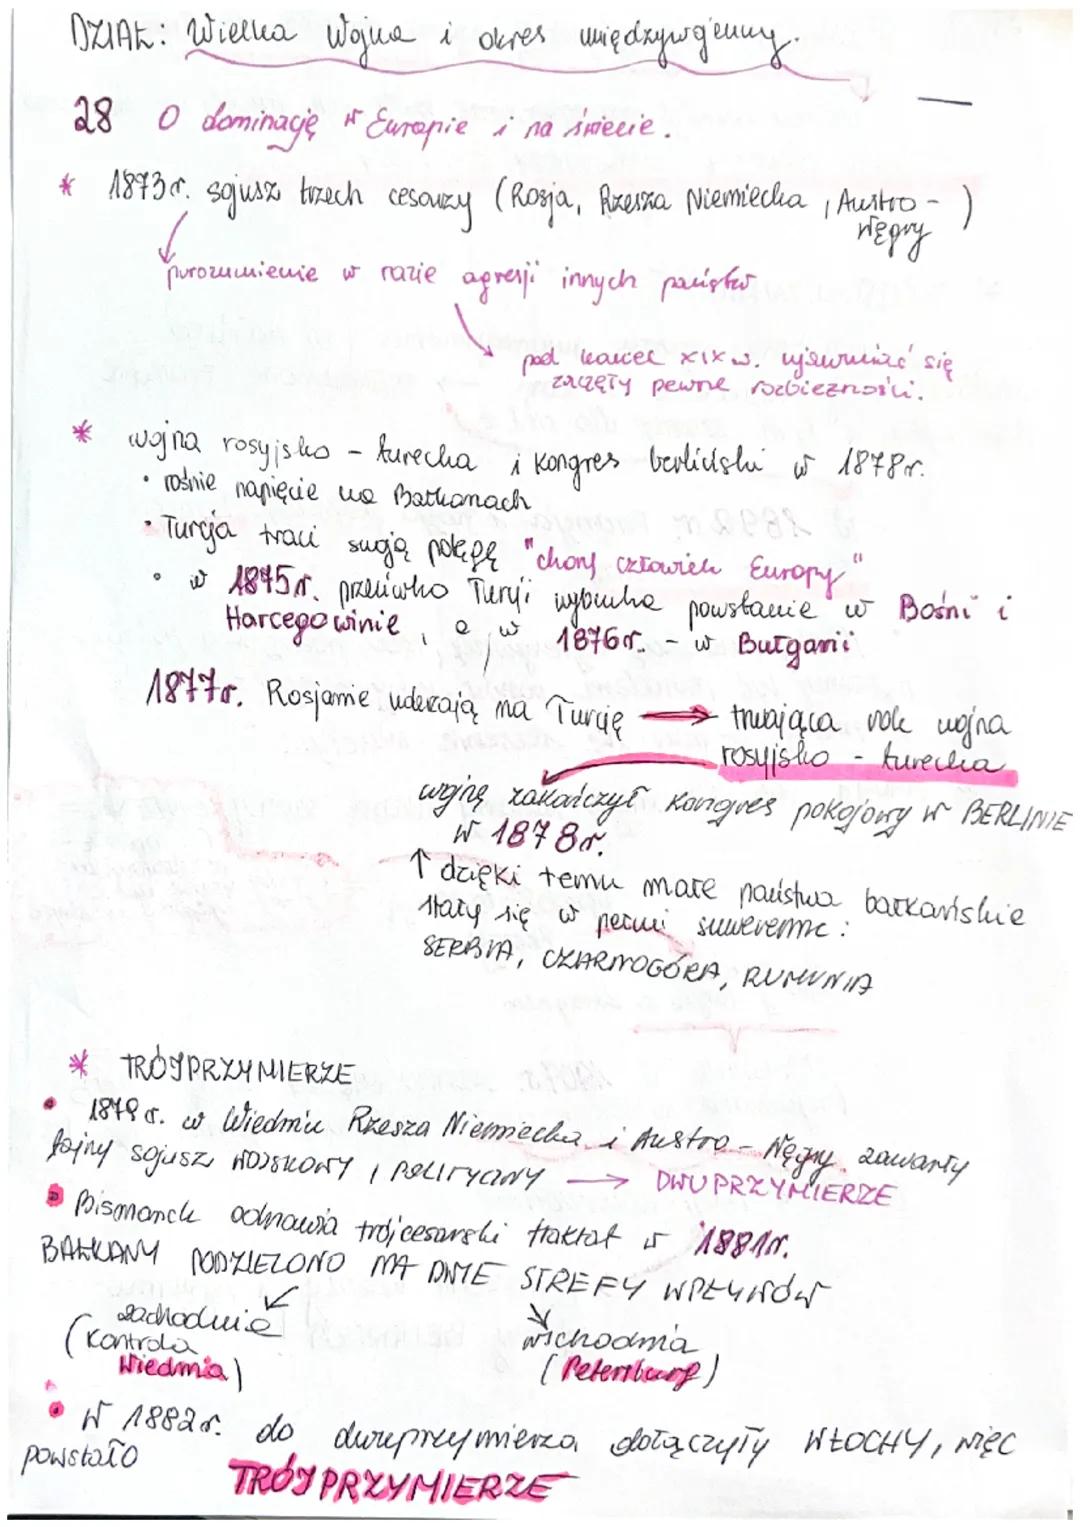 DZIAŁ: Wielka Wojna i okres międzywojenny.
28 O dominację w Europie i na świecie.
* 1873r. sojusz trzech cesarzy (Rosja, Rzesza Niemiecka, Austro-Węgry)
porozumienie w razie agresji innych państw
pod koniec XIX w. ujawniać się
zaczęły pewne rozbieżności.
* wojna rosyjsko - turecka i kongres berliński w 1878r.
• rośnie napięcie na Bałkanach
• Turcja traci swoją potęgę "chory człowiek Europy"
• w 1875r. przeciwko Turcji wybucha powstanie w Bośni i
Harcegowinie, a w 1876r. - w Bułgarii
1877r. Rosjanie uderzają na Turcję → trwająca rok wojna
rosyjsko - turecka
wojnę zakończył kongres pokojowy w BERLINIE
w 1878r.
↑ dzięki temu małe państwa bałkańskie
stały się w pełni suwerenne:
SERBIA, CZARNOGÓRA, RUMUNIA
* TRÓJPRZYMIERZE
• 1879r. w Wiedniu Rzesza Niemiecka i Austro - Węgry zawarły
tajny sojusz WOJSKOWY i POLITYCZNY → DWUPRZYMIERZE
• Bismarck odnawia trójcesarski traktat w 1881r.
BAŁKANY PODZIELONO NA DWIE STREFY WPŁYWÓW
zachodnie wschodnia
(kontrola (Petersburg)
Wiednia)
• W 1882r. do dwuprzymierza dołączyły WŁOCHY, więc
powstało
TRÓJPRZYMIERZE